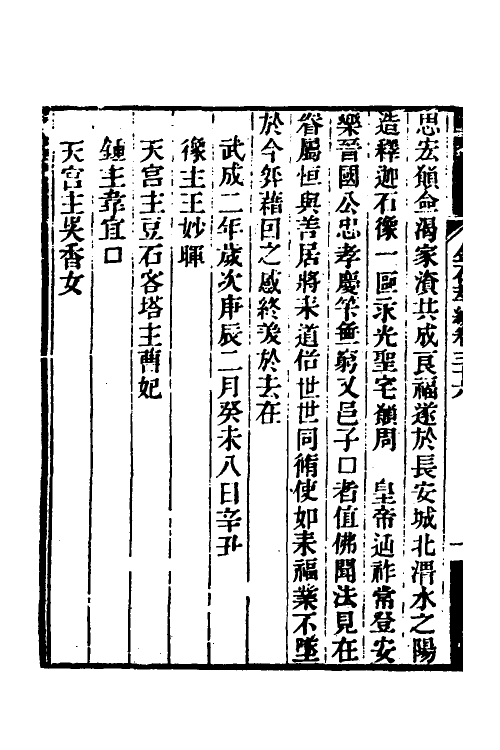 思宏願僉渴家資共成良福遂於長安城北渭水之陽
造釋迦石像一區永光聖宅願周　皇帝延祚常登安
樂晉國公忠孝慶笇無窮又邑子口者值佛聞法見在
眷屬恒與善居將来道俗世世同脩使如来福業不墜
於今年藉因之感終美於去在
武成二年歲次庚辰二月癸未八日辛丑
像主王妙暉
天宮主豆石客塔主曹妃
鍾主韋宜口
天宮主吳香女
金石萃編卷三十六
一